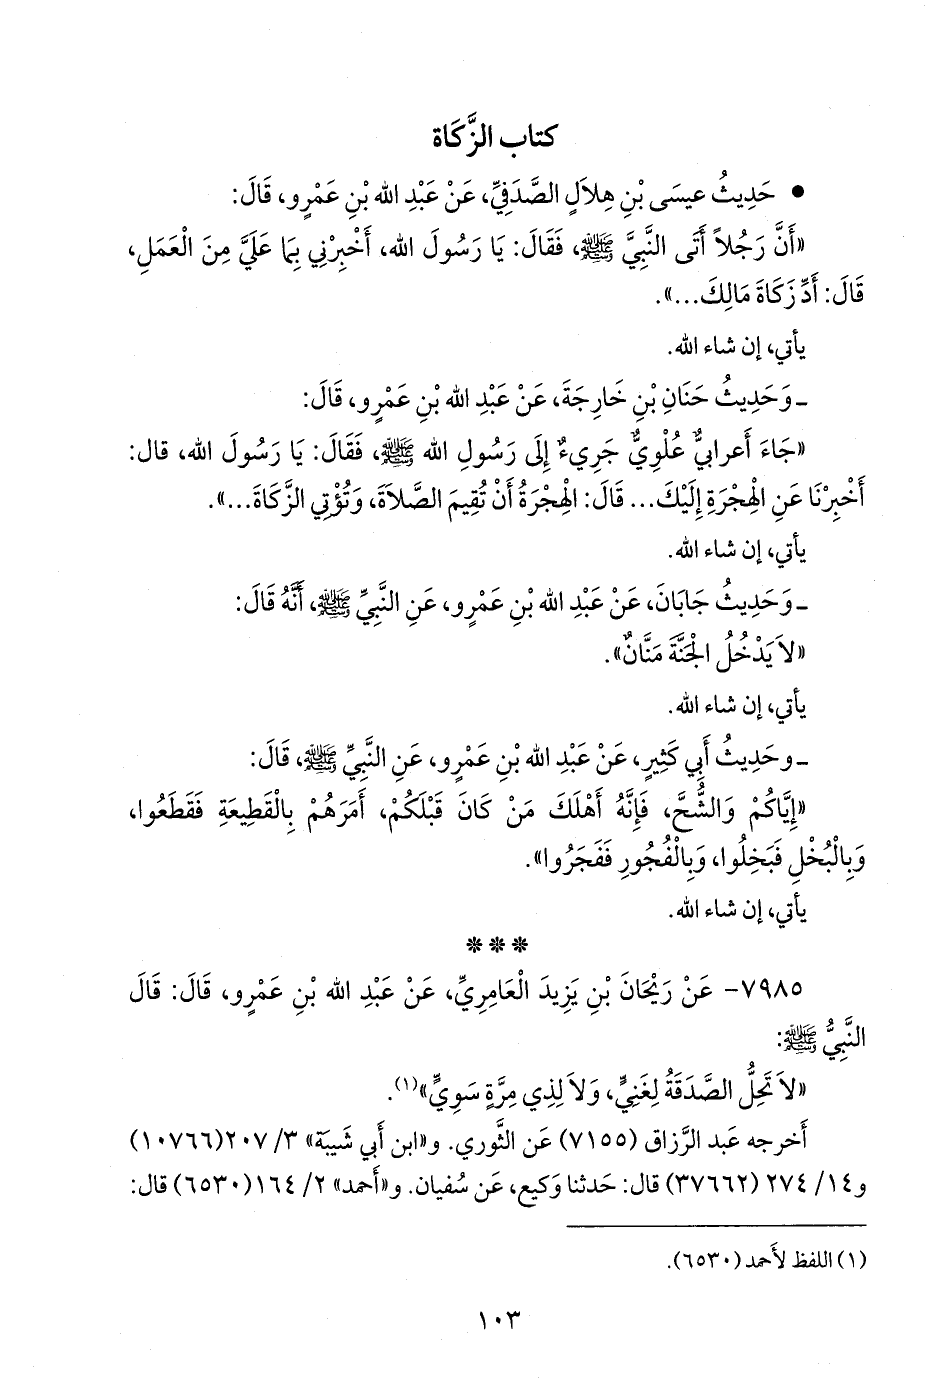 كتاب الزَّكَاة
• حَدِيثُ عيسَى بْنِ هِلاَلٍ الصَّدَفِيِّ، عَنْ عَبْدِ الله بْنِ عَمْرٍو، قَالَ:
«أَنَّ رَجُلاً أَتَى النَّبِيَّ ﷺ، فَقَالَ: يَا رَسُولَ الله، أَخْبِرْنِي بِمَا عَلَيَّ مِنَ الْعَمَلِ،
قَالَ: أَدِّ زَكَاةَ مَالِكَ...».
يأتي، إن شاء الله.
ـ وَحَدِيثُ حَنَانِ بْنِ خَارِجَةَ، عَنْ عَبْدِ الله بْنِ عَمْرٍو، قَالَ:
«جَاءَ أَعرابيٌّ عُلْوِيٌّ جَرِيءٌ إِلَى رَسُولِ الله ﷺ، فَقَالَ: يَا رَسُولَ الله، قال:
أَخْبِرْنَا عَنِ الْهِجْرَةِ إِلَيْكَ... قَالَ: الْهِجْرَةُ أَنْ تُقِيمَ الصَّلاَةَ، وَتُؤْتِي الزَّكَاةَ...».
يأتي، إن شاء الله.
ـ وَحَدِيثُ جَابَانَ، عَنْ عَبْدِ الله بْنِ عَمْرٍو، عَنِ النَّبِيِّ ﷺ، أَنَّهُ قَالَ:
«لاَ يَدْخُلُ الْجَنَّةَ مَنَّانٌ».
يأتي، إن شاء الله.
ـ وحَدِيثُ أَبِي كَثِيرٍ، عَنْ عَبْدِ الله بْنِ عَمْرٍو، عَنِ النَّبِيِّ ﷺ، قَالَ:
«إِيَّاكُمْ وَالشُّحَّ، فَإِنَّهُ أَهْلَكَ مَنْ كَانَ قَبْلَكُمْ، أَمَرَهُمْ بِالْقَطِيعَةِ فَقَطَعُوا،
وَبِالْبُخْلِ فَبَخِلُوا، وَبِالْفُجُورِ فَفَجَرُوا».
يأتي، إن شاء الله.
* * *
٧٩٨٥- عَنْ رَيْحَانَ بْنِ يَزِيدَ الْعَامِرِيِّ، عَنْ عَبْدِ الله بْنِ عَمْرٍو، قَالَ: قَالَ
النَّبِيُّ ﷺ:
«لاَ تَحِلُّ الصَّدَقَةُ لِغَنِيٍّ، وَلاَ لِذِي مِرَّةٍ سَوِيٍّ»(١).
أَخرجه عَبد الرَّزاق (٧١٥٥) عَن الثَّوري. و«ابن أَبي شَيبَة» ٣/ ٢٠٧(١٠٧٦٦)
و١٤/ ٢٧٤ (٣٧٦٦٢) قال: حَدثنا وَكيع، عَن سُفيان. و«أَحمد» ٢/ ١٦٤(٦٥٣٠) قال:
(١) اللفظ لأَحمد (٦٥٣٠).
١٠٣